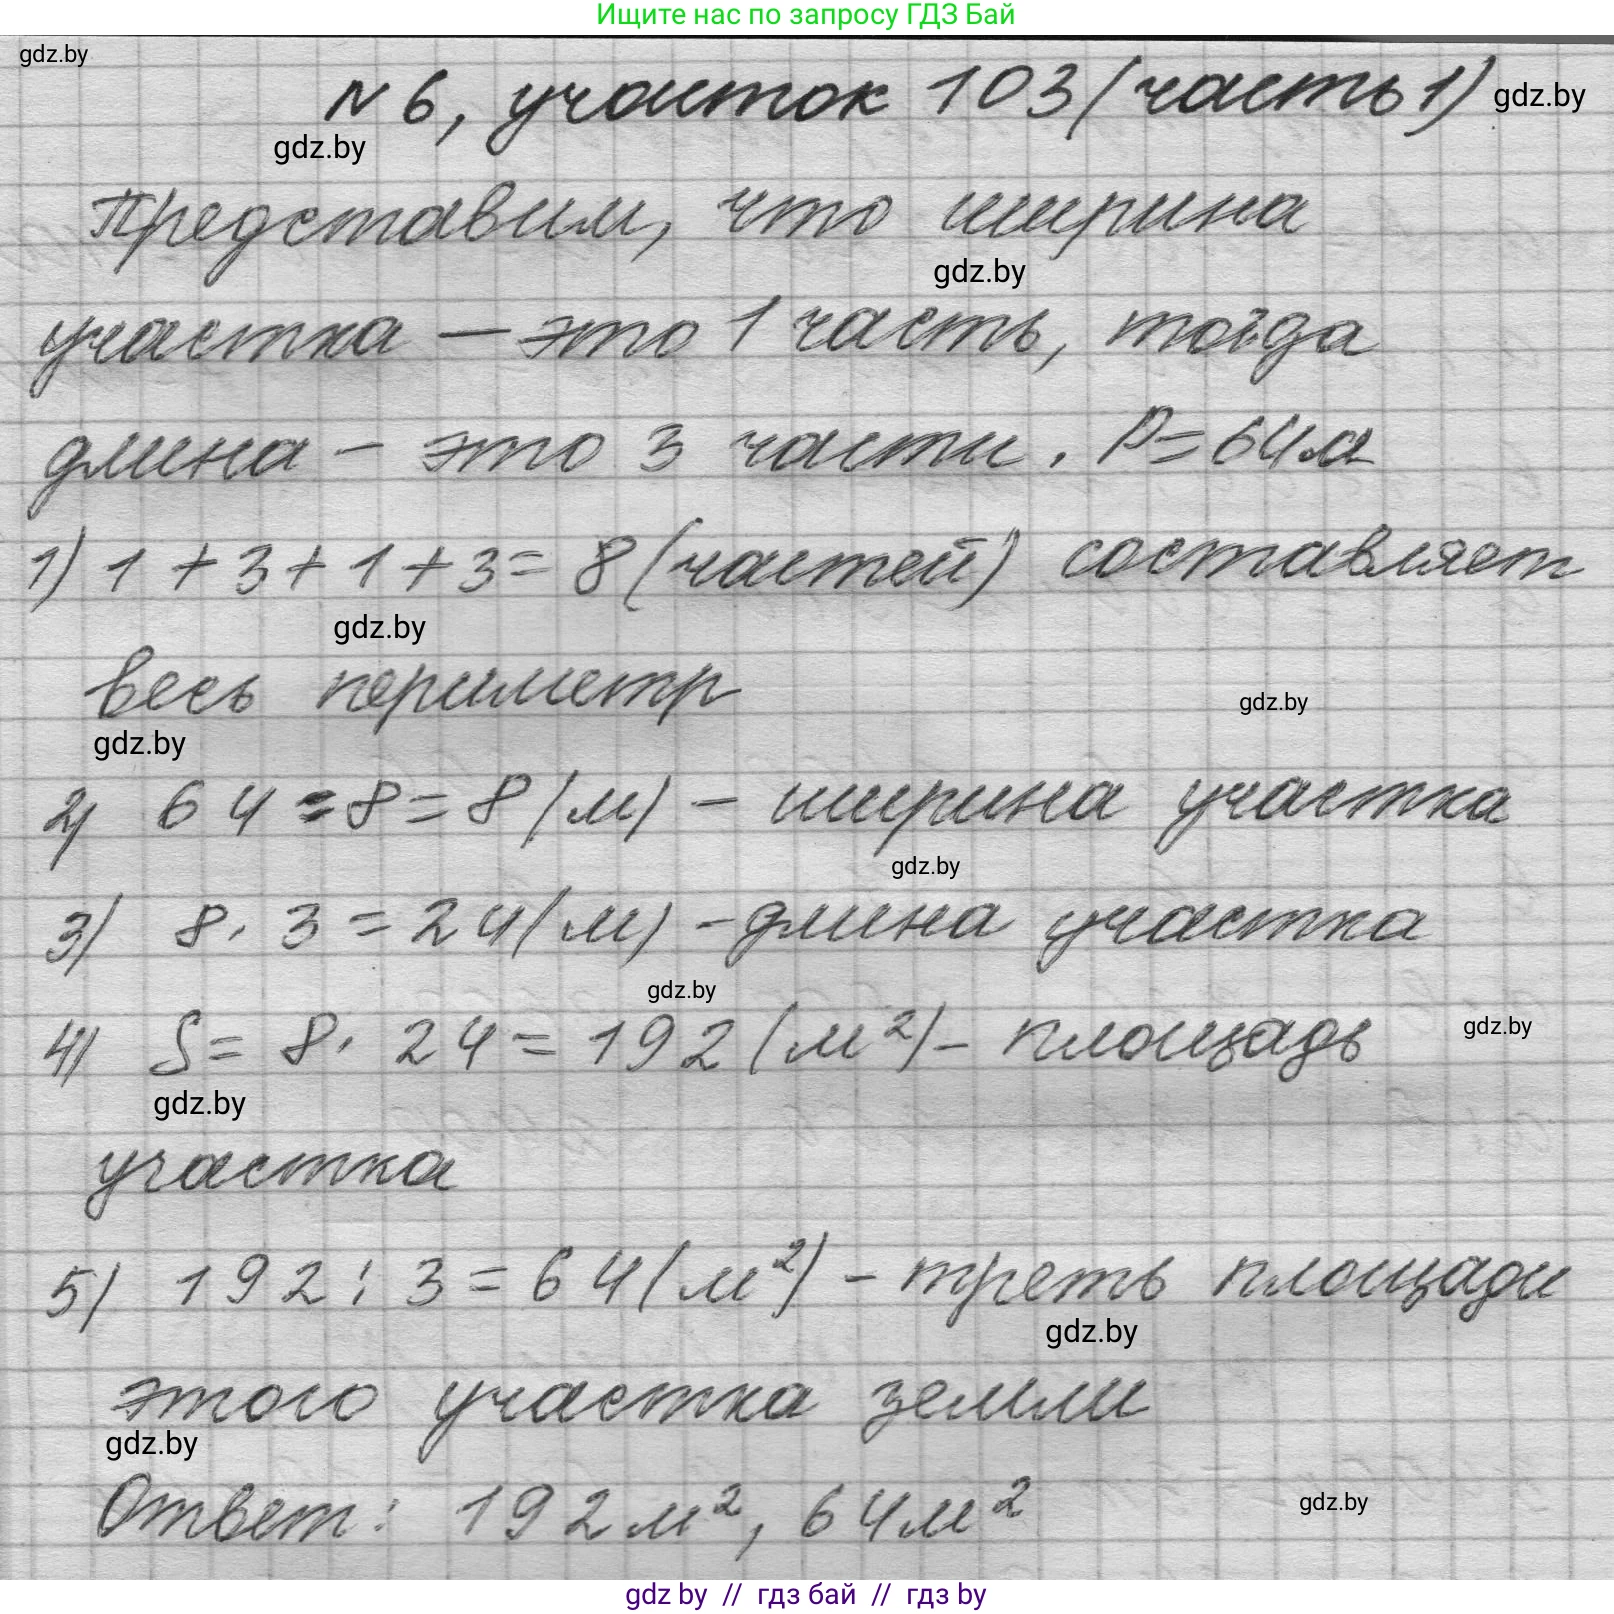 Ищите нас по запросу ГДЗ Бай
gdz.by
№ 6, участок 103 (часть 1) gdz.by
gdz.by
Представим, что ширина
gdz.by
участка — это 1 часть, тогда
длина – это 3 части. P = 64 м
1) 1 + 3 + 1 + 3 = 8 (частей) составляет
gdz.by
весь периметр
gdz.by
gdz.by
2) 64 : 8 = 8 (м) – ширина участка
gdz.by
3) 8 · 3 = 24 (м) – длина участка
gdz.by
4) S = 8 · 24 = 192 (м²) – площадь
gdz.by
gdz.by
участка
5) 192 : 3 = 64 (м²) – треть площади
gdz.by
этого участка земли
gdz.by
Ответ: 192 м², 64 м²
gdz.by
gdz by // гдз бай // гдз by